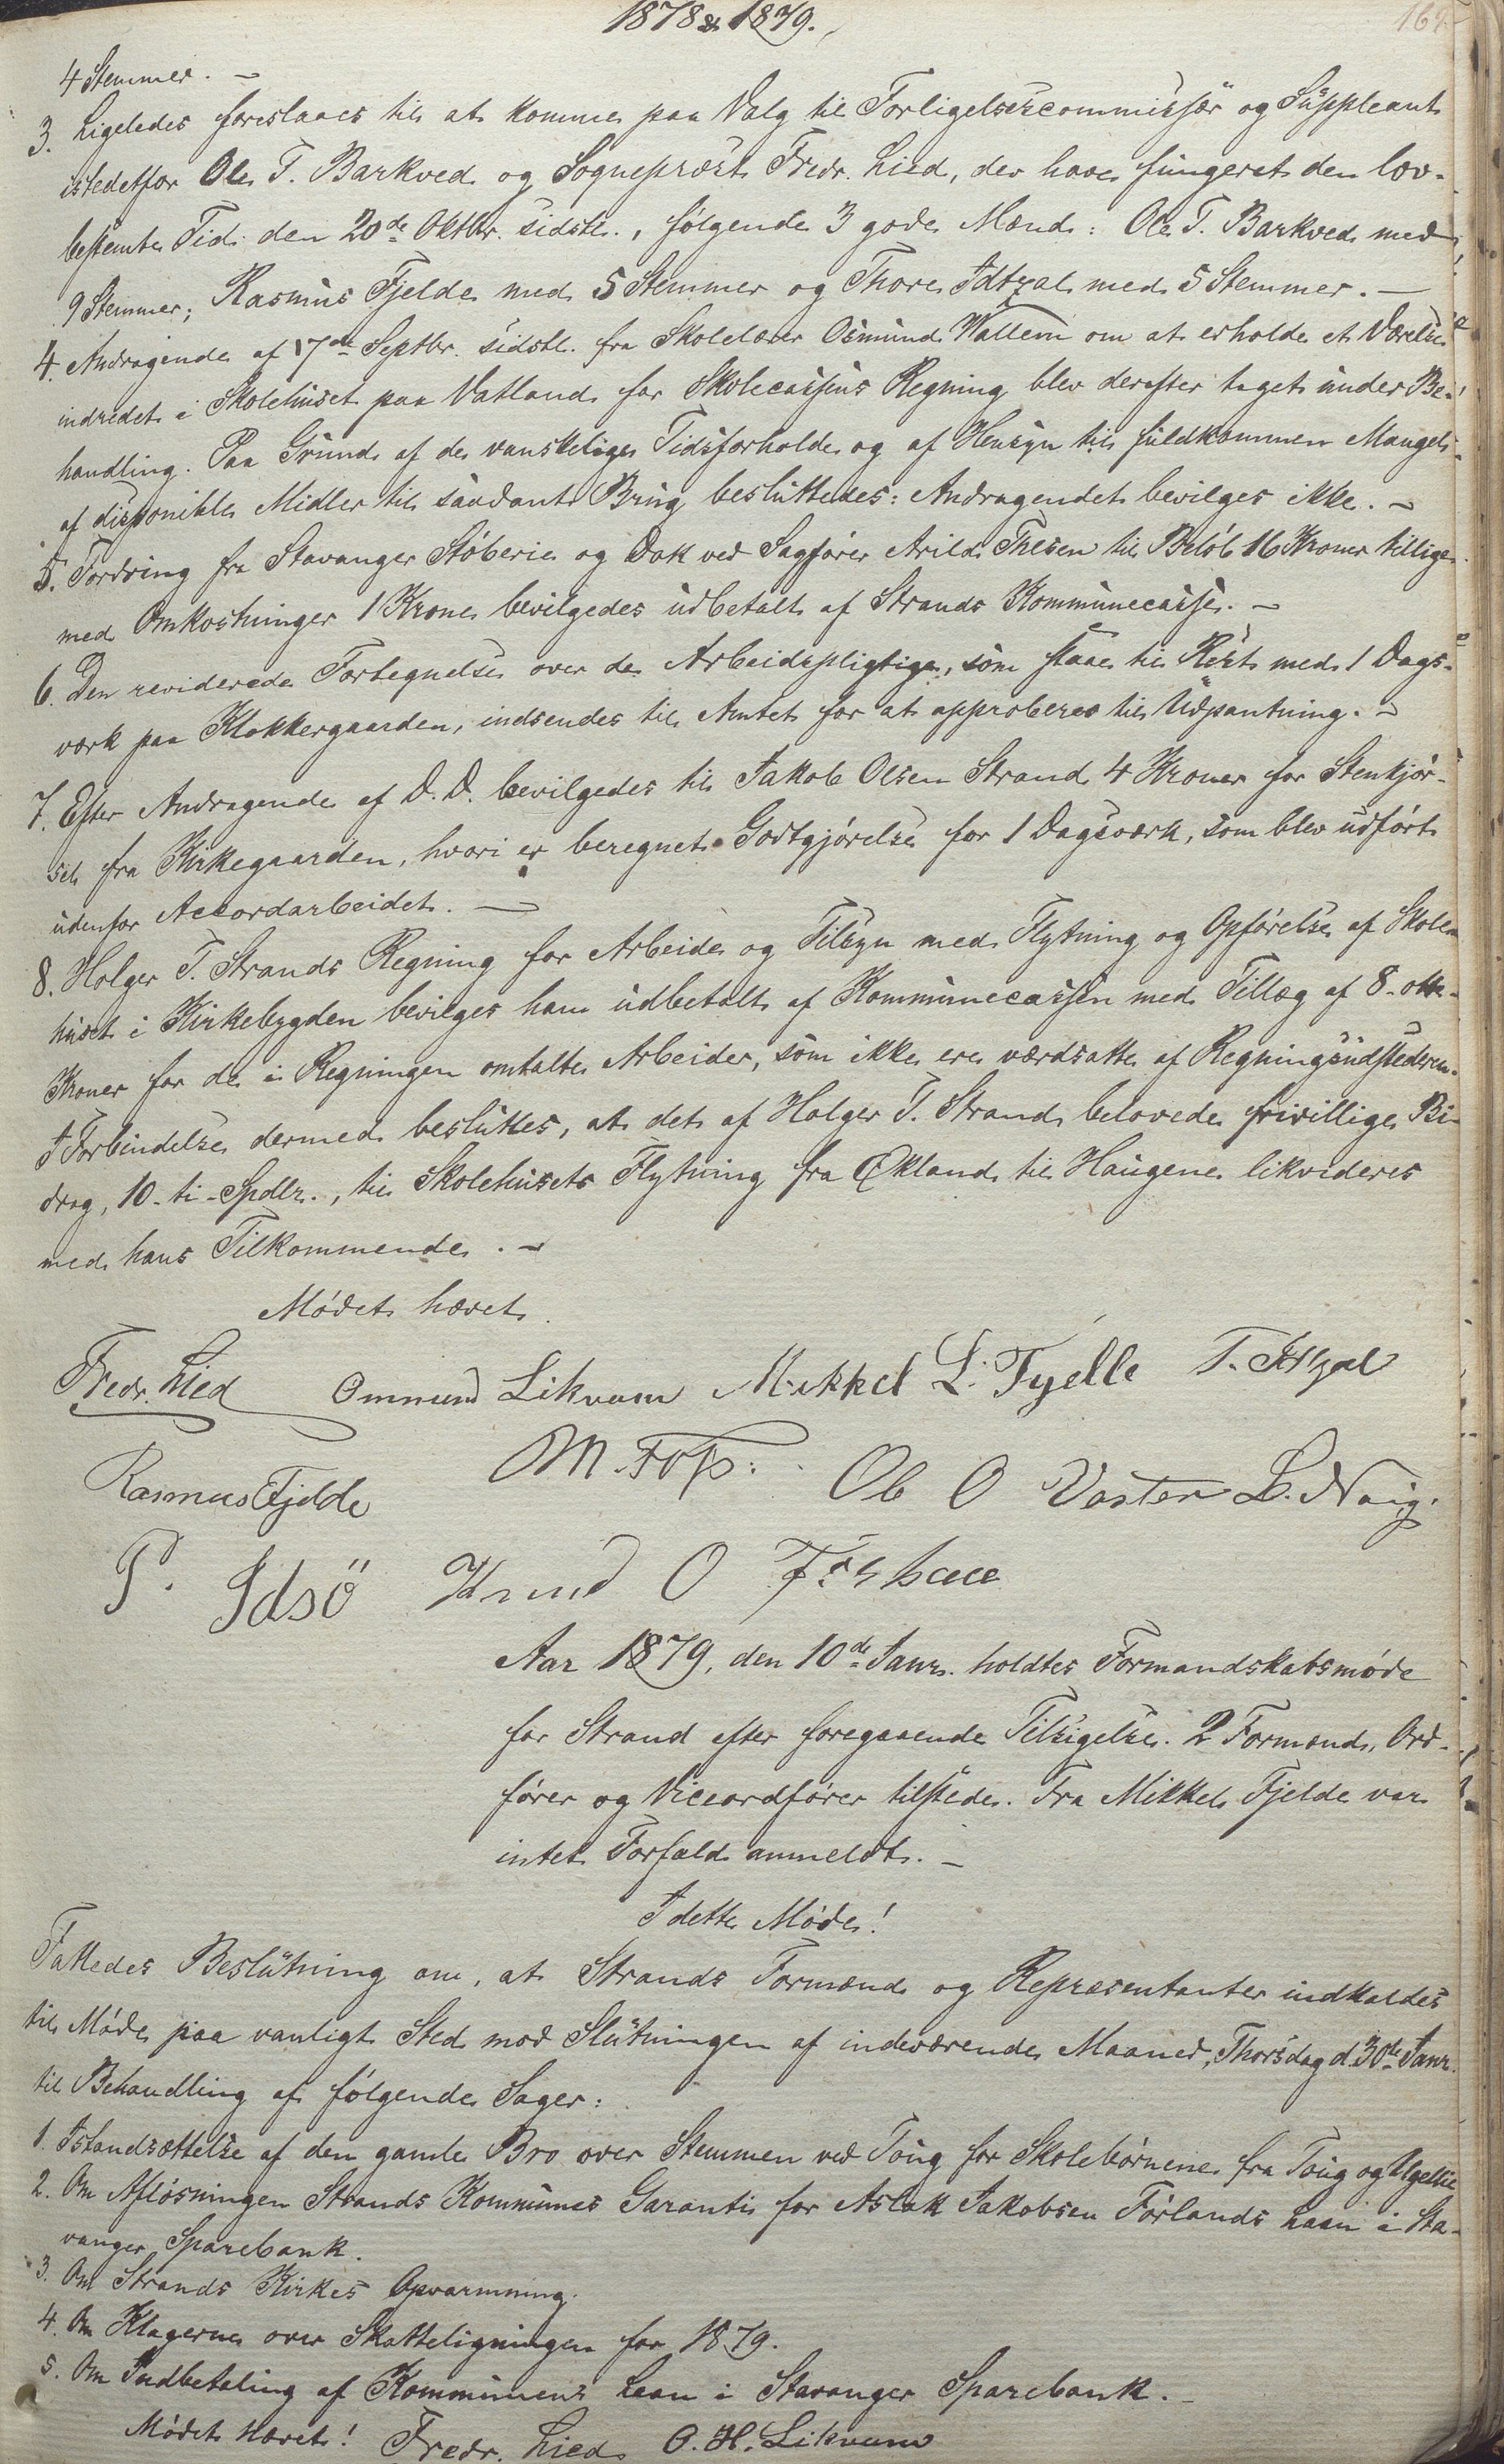 1878 & 1879.
169
4 Stemmer. –
3. Ligeledes foreslaaes til at komme paa Valg til Forligelsescommissær og Suppleant
istedetfor Ole T. Barkved og Sognepræst Fredr. Lied, der have fungeret den lov-
bestemte Tid den 20de Oktbr. sidstl., følgende 3 gode Mænd: Ole T. Barkved med
9 Stemmer; Rasmus Fjelde med 5 Stemmer og Thore Idtzal med 5 Stemmer. –
4. Andragende af 17de Septbr. sidstl. fra Skolelærer Osmund Wallem om at erholde et Værelse
indredet i Skolehuset paa Vatland for Skolecassens Regning blev derefter taget under Be-
handling. Paa Grund af de vanskelige Tidsforholde og af Hensyn til fuldkommen Mangel
af disponible Midler til saadant Brug besluttedes: Andragendet bevilges ikke. –
5. Fordring fra Stavanger Støberie og Dok ved Sagfører Arild Thesen til Beløb 16 Kroner tillige
med Omkostninger 1 Krone bevilgedes udbetalt af Strands Kommunecasse. –
6. Den reviderede Fortegnelse over de Arbeidspligtige, som staae til Rest med 1 Dags-
værk paa Klokkergaarden, indsendes til Amtet for at approberes til Udpantning. –
7. Efter Andragende af D. D. bevilgedes til Jakob Olsen Strand 4 Kroner for Stenkjør-
sel fra Kirkegaarden, hvori er beregnet Godtgjørelse for 1 Dagsværk, som blev udført
udenfor Accordarbeidet. –
8. Holger T. Strands Regning for Arbeide og Tilsyn med Flytning og Opførelse af Skole-
huset i Kirkebygden bevilges ham udbetalt af Kommunecassen med Tillæg af 8 - otte -
Kroner for de i Regningen omtalte Arbeider, som ikke ere værdsatte af Regningsudstederen.
I Forbindelse dermed besluttes, at det af Holger T. Strand belovede frivillige Bi-
drag, 10 - ti - Spdlr., til Skolehusets Flytning fra Økland til Haugene likvideres
med hans Tilkommende. –
Mødet hævet.
Fredr. Lied Ommund Likvam Mikkel L. Fjelle T. Idtzal
Rasmus Fjelde M. Foss. Ole O Vaster L. Noug.
P. Idsö Knud O
Aar 1879, den 10de Janr. holdtes Formandskabsmøde
for Strand efter foregaaende Tilsigelse. 2 Formænd, Ord-
fører og Viceordfører tilstede. Fra Mikkel Fjelde var
intet Forfald anmeldt. –
I dette Møde!
Fattedes Beslutning om, at Strands Formænd og Repræsentanter indkaldes
til Møde paa vanligt Sted mod Slutningen af indeværende Maaned, Thorsdag d. 30te Janr.
til Behandling af følgende Sager:
1. Istandsættelse af den gamle Bro over Stemmen ved Toug for Skolebørnene fra Toug og
2. Om Afløsningen Strands Kommunes Garanti for Aslak Jakobsen Førlands Laan i Sta-
vanger Sparebank.
3. Om Strands Kirkes Opvarmning.
4. Om Klagerne over Skatteligningen for 1879.
5. Om Indbetaling af Kommunens Laan i Stavanger Sparebank. –
Mødet Hævet! Fredr. Lied O. H. Likvam